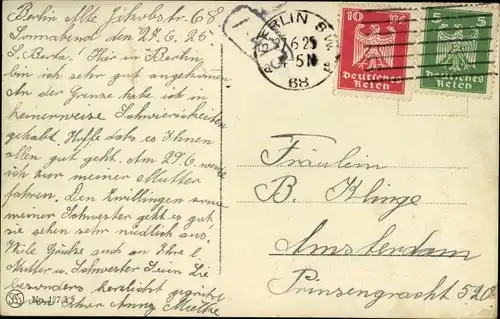 Berlin Alte Jakobstr. 68
Sonnabend den 27.6.25
L. Berta! Hier in Berlin
bin ich sehr gut angekommen
An der Grenze habe ich
keinerweise Schwierigkeiten
gehabt. Hoffe dass es Ihnen
allen gut geht. Am 29.6. werde
ich zur meiner Mutter
fahren. Den Zwillingen
meiner Schwester geht es gut,
sie sehen sehr niedlich aus.
Viele Grüße auch an Ihre l.
Mutter u. Schwester
besonders herzlichst gegrüßt
von Ihrer Anny
No. 197
BERLIN S.W.
6.25
5N
68
10
Deutsches
Reich
5
5
Deutsches
Reich
Fräulein
B. Klinge
Amsterdam
Prinsengracht 520